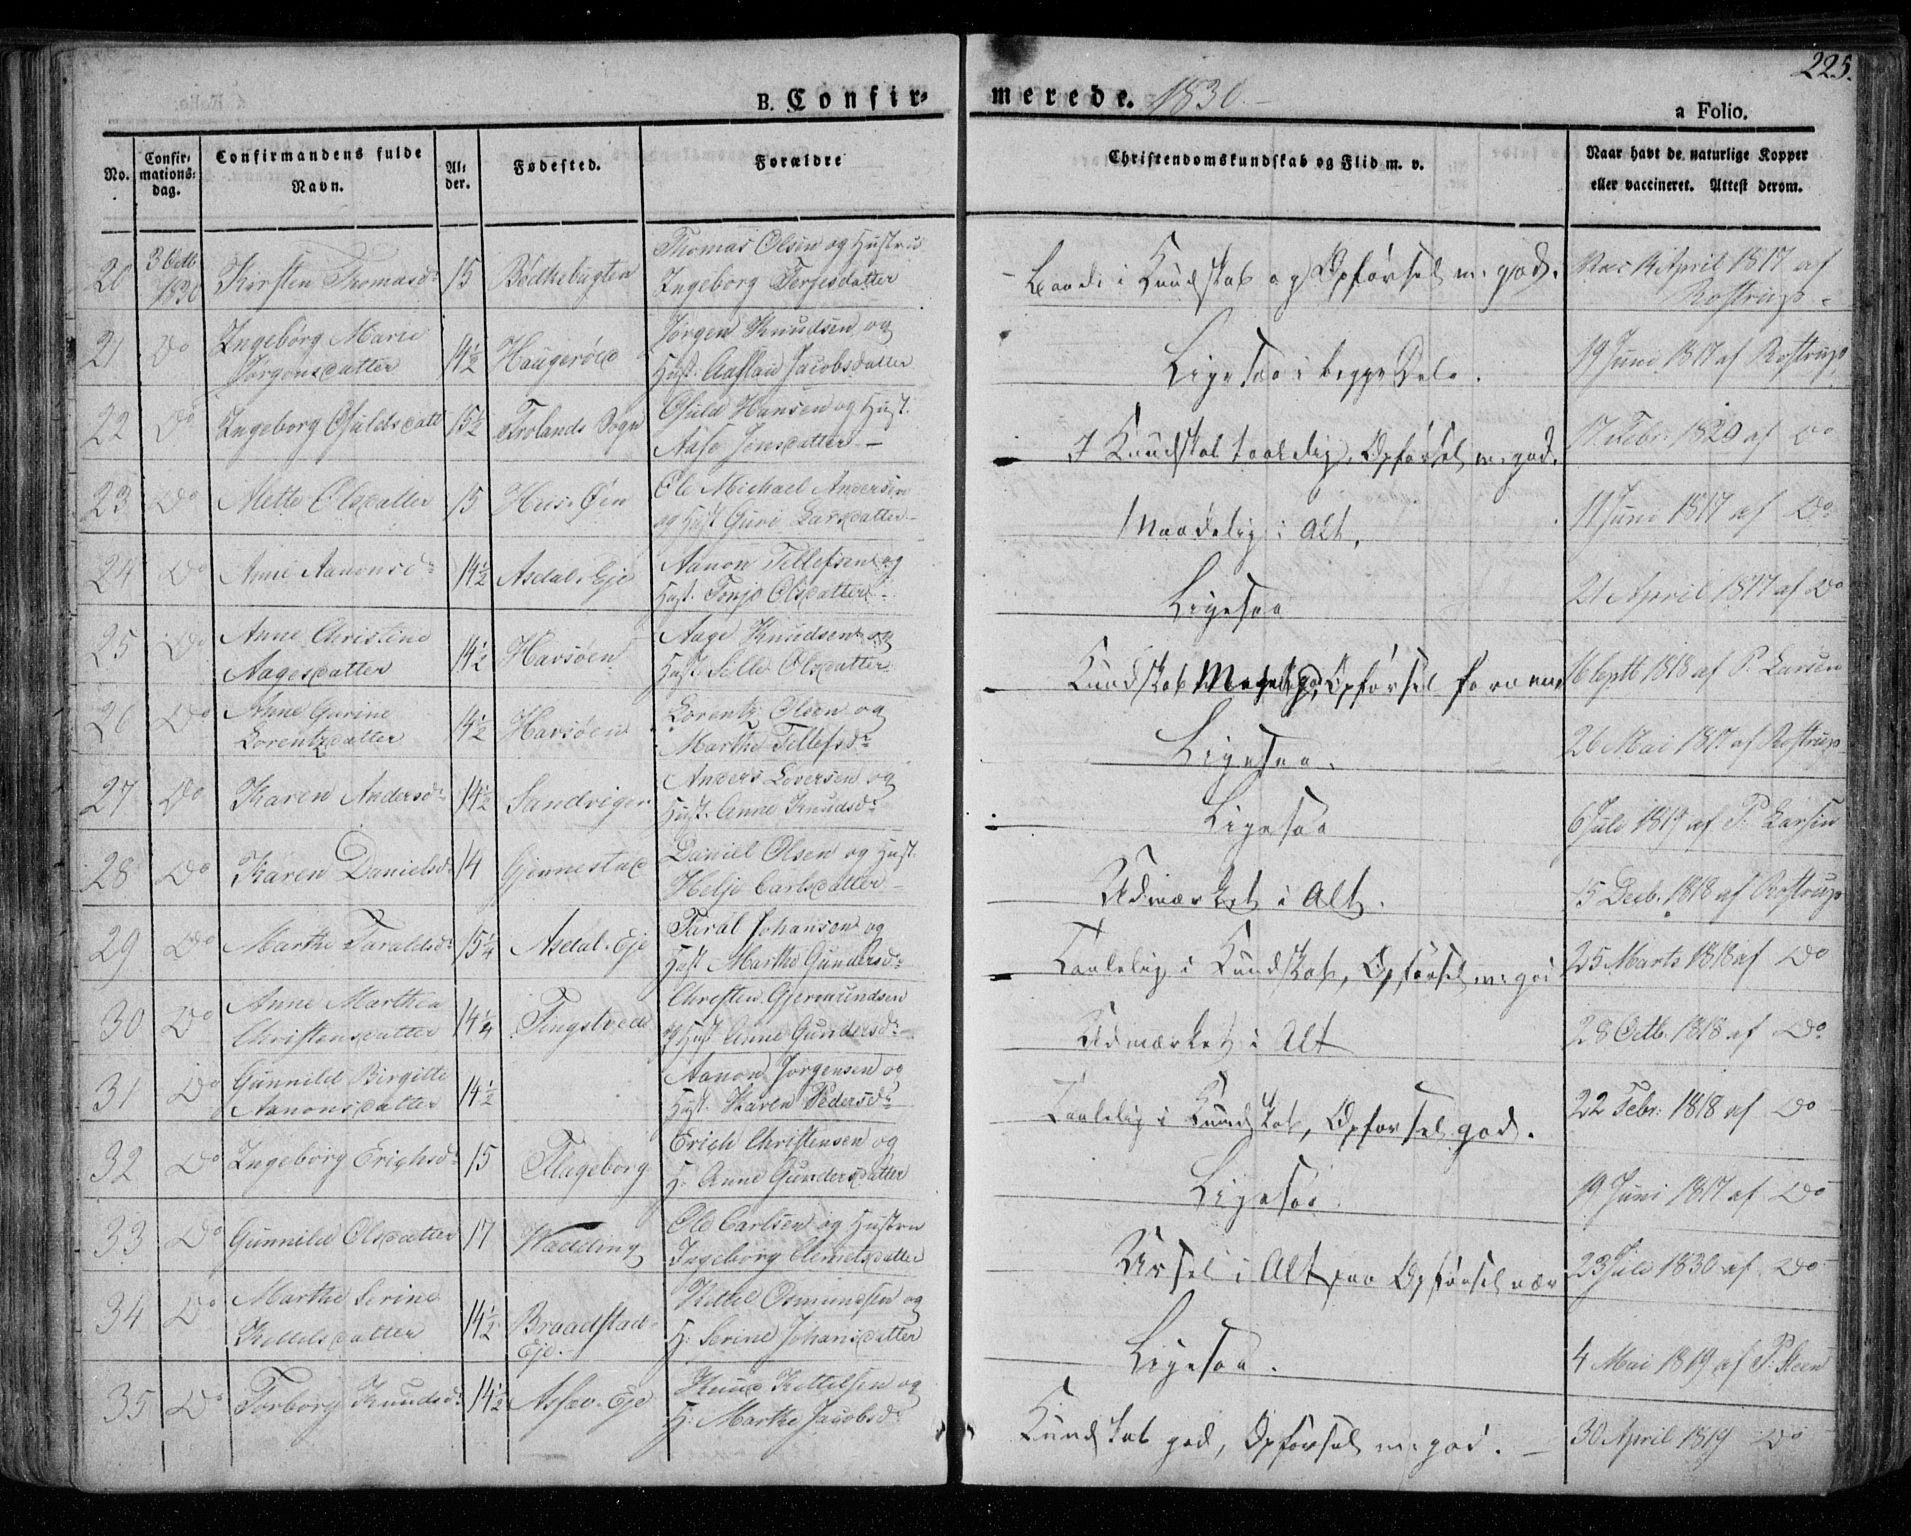 225.
B. Confir-
merede. 1830.-
a Folio.
No.
Confir-
mations-
dag.
Confirmandens fulde
Navn.
Al-
der.
Fødested.
Forældre
Christendomskundskab og Flid m. v.
Naar havt de naturlige Kopper
eller vaccineret. Attest derom.
20 3 Octb 1830 Kirsten Thomasd: 15 Bödkebugten
Thomas Olsen og Hustrue
Ingeborg Terjesdatter
Baade i Kundskab og Opførsel m. god.
Vac 14 April 1817 af
Rostrup
21 Do Ingebörg Marie
Jørgensdatter
14½ Haugeröed
Jørgen Knudsen og
Hust: Aaslau Jacobsdatter
Ligesaa i begge Dele.
19 Juni 1817 af Rostrup
22 Do Ingeborg Osuldsdatt 15½ Frolands Sogn
Osuld Hansen og Hust.
Aase Jensdatter -
I Kundskab taalelig, Opførsel m. god.
17 Febr: 1820 af Do
23 Do Mette Olsdatter 15 Huus-Øen
Ole Michael Andersen
og Hust Guri Larsdatter
Maadelig i Alt.
11 Juni 1817 af Do
24 Do Anne Aanonsd: 14½ Asdal-Eje
Aanon Tellefsen og
Hust. Tonje Olsdatter
Ligesaa
21 April 1817 af Do
25 Do Anne Christine
Aagesdatter
14½ Havsöen
Aage Knudsen og
Hust Sille Olsdatter
Kundskab Meget god, Opførsel
16 Septb 1818 af P. Larsen
26 Do Anne Gurine
Lorentzdatter
14½ Havsöen
Lorentz Olsen og
Marthe Tellefsd:
Ligesaa.
26 Mai 1817 af Rostrup
27 Do Karen Andersd: 14½ Sandvigen
Anders Siversen og
Hust. Anne Knudsd:
Ligesaa
6 Juli 1819 af P. Larsen
28 Do Karen Danielsd: 14 Gjennestad
Daniel Olsen og Hust.
Helje Carlsdatter -
Udmærket i Alt.
15 Decb. 1818 af Rostrup
29 Do Marthe Taraldsd: 15¼ Asdal-Eje
Taral Johansen og
Hust Marthe Gundersd:
Taalelig i Kundskab, Opførsel m. god
25 Marts 1818 af Do
30 Do Anne Marthea
Christensdatter
14¼ Tingstvedt
Christen Gjermundsen
og Hust Anne Gundersd:
Udmærket i Alt
28 Octb. 1818 af Do
31 Do Gunnild Birgitte
Aanonsdatter
14½
Aanon Jørgensen og
Hust. Karen Pedersd:
Taalelig i Kundskab, Opførsel god.
22 Febr: 1818 af Do
32 Do Ingeborg Erichsd: 15 Flageborg
Erich Christensen og
H: Anne Gundersdatter
Ligesaa.
19 Juni 1817 af Do
33 Do Gunnild Olsdatter 17 Wedding
Ole Carlsen og Hustru
Ingeborg Clemetsdatter
Ussel i Alt paa Opførsel nær
23 Juli 1830 af Do
34 Do Marthe Serine
Kittelsdatter
14½ Braadstad-
Eje.
Kittel Osmundsen og
H: Serine Johansdatter
Ligesaa.
4 Mai 1819 af P. Steen
35 Do Torborg Knudsd: 14½ Assæv-Eje
Knud Kittelsen og
H: Marthe Jacobsd:
Kundskab god, Opførsel m. god. -
30 April 1819 Do